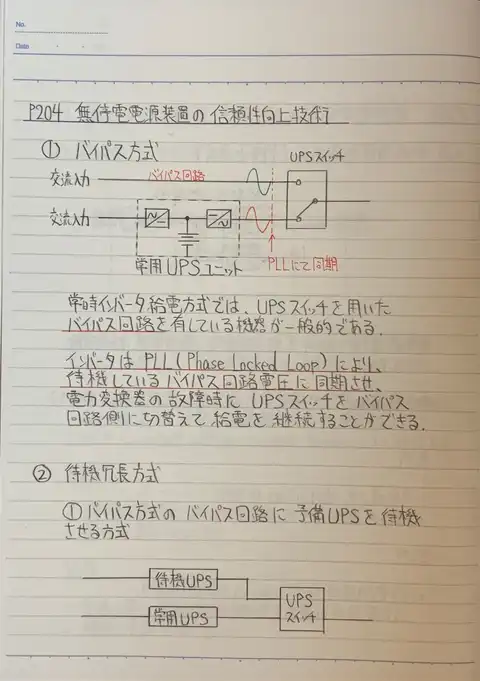 No.
Date
P204 無停電電源装置の信頼性向上技術
① バイパス方式
UPSスイッチ
交流入力
バイパス回路
交流入力
常用UPSユニット
PLLにて同期
常時インバータ給電方式では、UPSスイッチを用いた
バイパス回路を有している機器が一般的である.
インバータは PLL(Phase Locked Loop)により、
待機しているバイパス回路電圧に同期させ、
電力変換器の故障時に UPSスイッチをバイパス
回路側に切替えて給電を継続することができる.
② 待機冗長方式
①バイパス方式の バイパス回路に 予備UPSを待機
させる方式
待機UPS
常用UPS
UPS
スイッチ